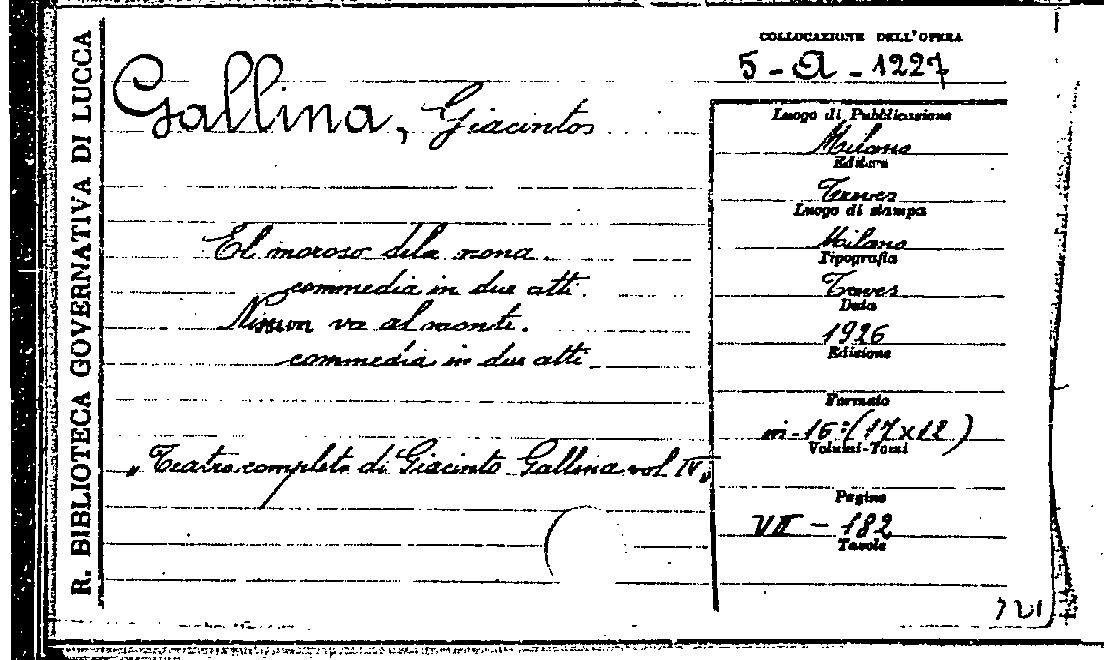 R. BIBLIOTECA GOVERNATIVA DI LUCCA
COLLOCAZIONE DELL'OPERA
5 - A - 1227
Gallina, Giacinto
El moroso dela nona
commedia in due atti.
Nissun va al monte.
commedia in due atti
"Teatro completo di Giacinto Gallina vol. IV"
Luogo di Pubblicazione
Milano
Editore
Treves
Luogo di stampa
Milano
Tipografia
Treves
Data
1926
Edizione
Formato
in-16º (17x12)
Volumi-Tomi
Pagine
VII - 182
Tavole